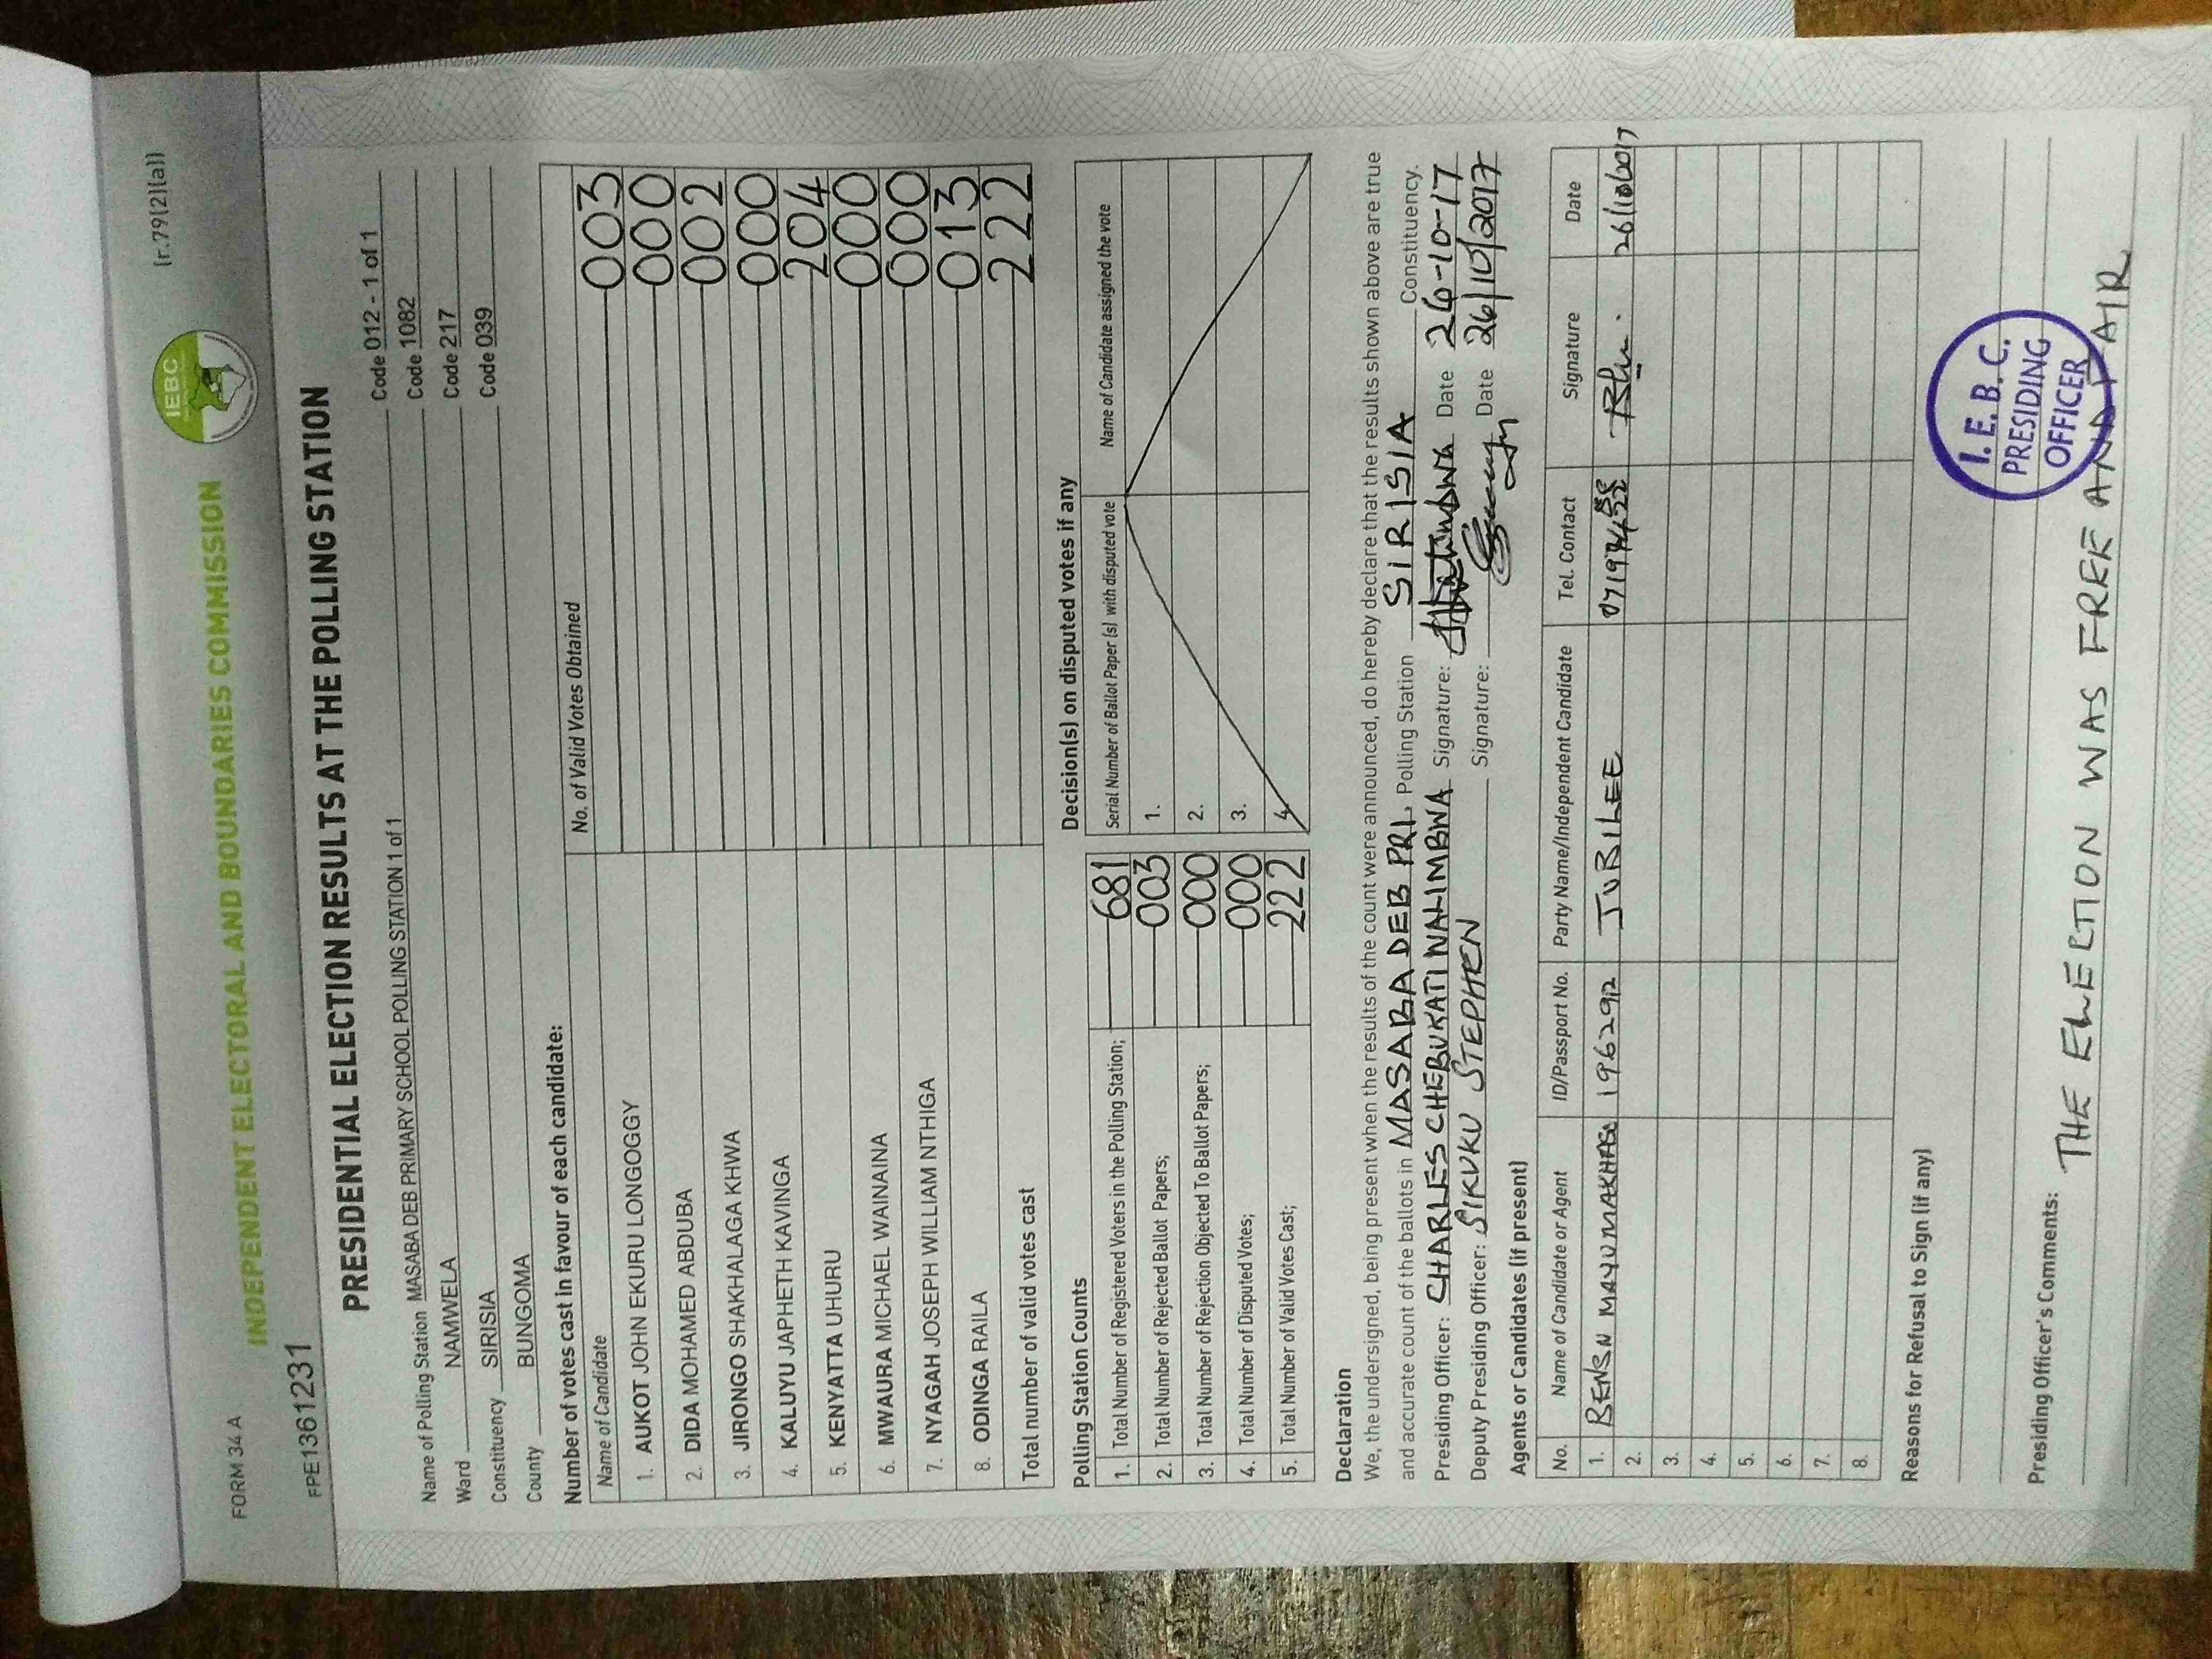 FORM 34 A
(r.79(2)(a))
IEBC
INDEPENDENT ELECTORAL AND BOUNDARIES COMMISSION
FPE1361231
PRESIDENTIAL ELECTION RESULTS AT THE POLLING STATION
Name of Polling Station MASABA DEB PRIMARY SCHOOL POLLING STATION 1 of 1 Code 012 - 1 of 1
Ward NAMWELA Code 1082
Constituency SIRISIA Code 217
County BUNGOMA Code 039
Number of votes cast in favour of each candidate:
Name of Candidate No. of Valid Votes Obtained
1. AUKOT JOHN EKURU LONGOGGY 003
2. DIDA MOHAMED ABDUBA 000
3. JIRONGO SHAKHALAGA KHWA 002
4. KALUYU JAPHETH KAVINGA 000
5. KENYATTA UHURU 204
6. MWAURA MICHAEL WAINAINA 000
7. NYAGAH JOSEPH WILLIAM NTHIGA 000
8. ODINGA RAILA 013
Total number of valid votes cast 222
Polling Station Counts
1. Total Number of Registered Voters in the Polling Station; 681
2. Total Number of Rejected Ballot Papers; 003
3. Total Number of Rejection Objected To Ballot Papers; 000
4. Total Number of Disputed Votes; 000
5. Total Number of Valid Votes Cast; 222
Decision(s) on disputed votes if any
Serial Number of Ballot Paper (s) with disputed vote Name of Candidate assigned the vote
1.
2.
3.
4.
Declaration
We, the undersigned, being present when the results of the count were announced, do hereby declare that the results shown above are true
and accurate count of the ballots in MASABA DEB PRI. Polling Station SIRISIA Constituency.
Presiding Officer: CHARLES CHEBUKATI NALIMBWA Signature: Date 26-10-17
Deputy Presiding Officer: SIKUKU STEPHEN Signature: Date 26/10/2017
Agents or Candidates (if present)
No. Name of Candidate or Agent ID/Passport No. Party Name/Independent Candidate Tel. Contact Signature Date
1. JUBILEE
2.
3.
4.
5.
6.
7.
8.
Reasons for Refusal to Sign (if any)
Presiding Officer's Comments: THE ELECTION WAS FREE AND FAIR
I. E. B. C.
PRESIDING
OFFICER